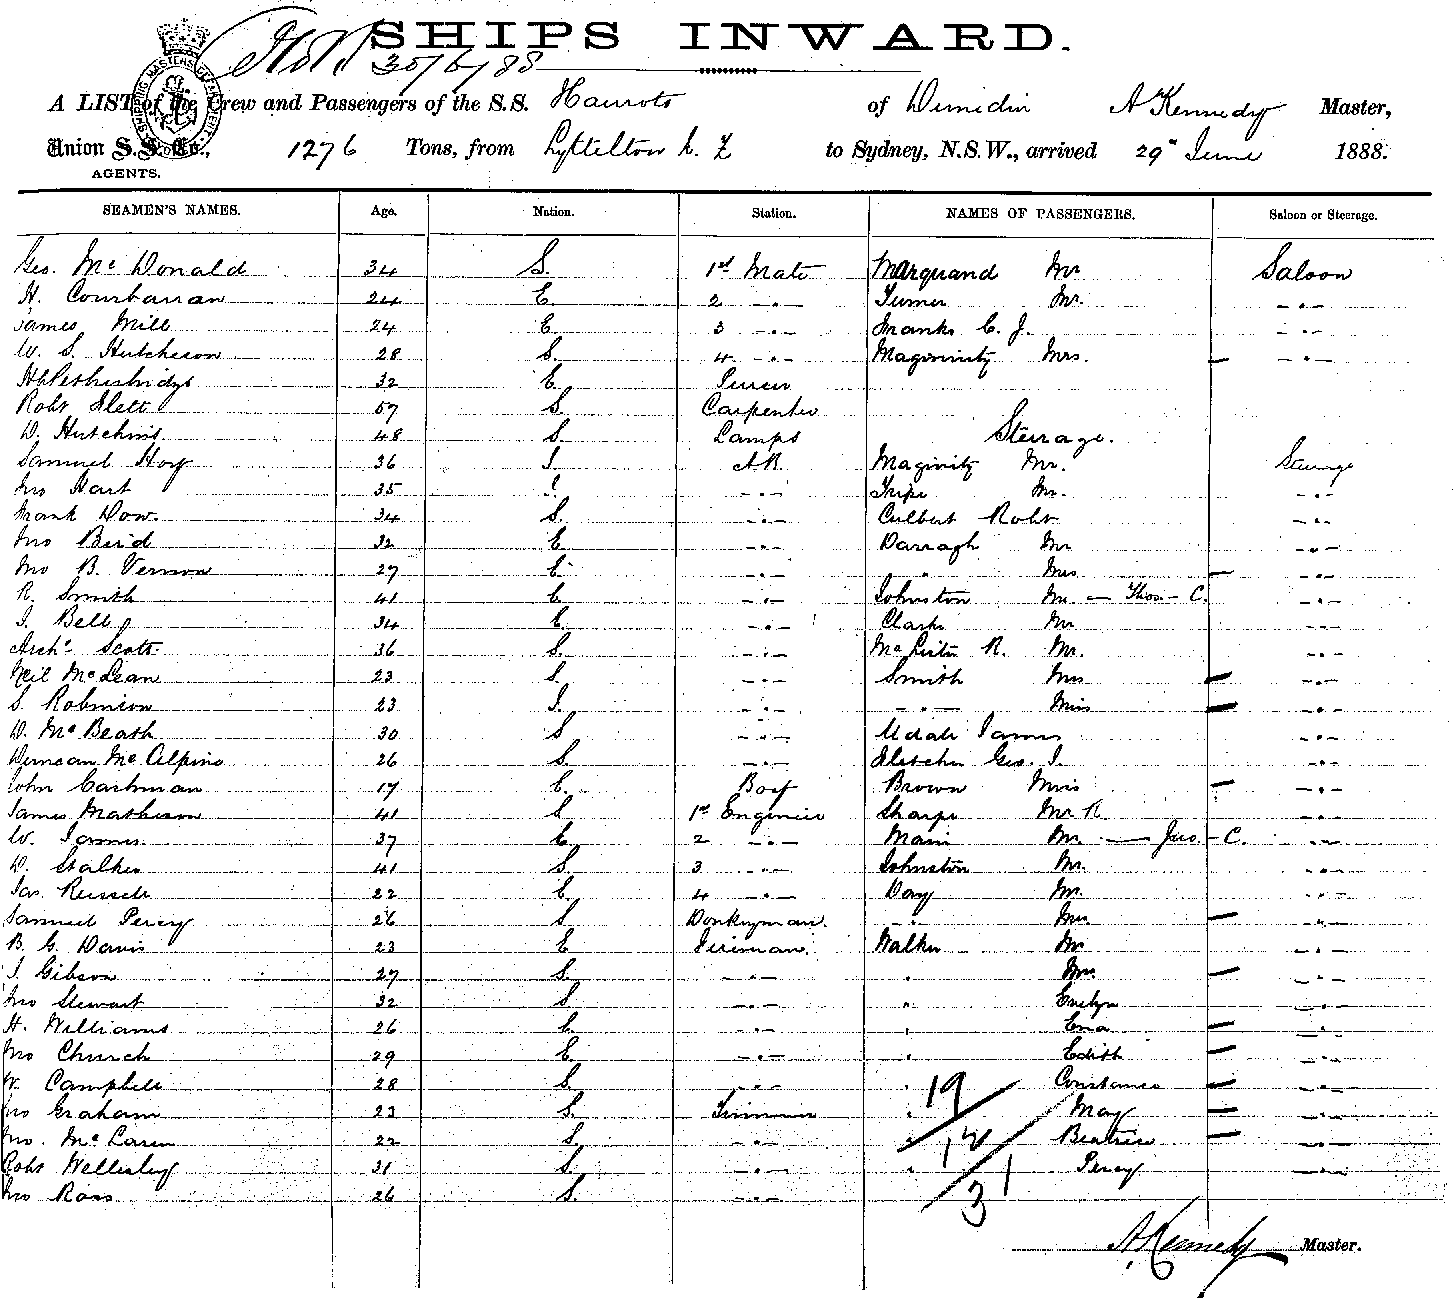 SHIPS INWARD.
30/6/88
A LIST of the Crew and Passengers of the S.S. Hauroto of Dunedin A Kennedy Master,
Union S.S. Co., 1276 Tons, from Lyttelton N. Z to Sydney, N.S.W., arrived 29" June 1888.
AGENTS.
SEAMEN'S NAMES. Age. Nation. Station. NAMES OF PASSENGERS. Saloon or Steerage.
Geo. Mc Donald 34 S. 1st Mate Marquand Mr Saloon
H. Courbarran 24 E 2 -"- Turner Mr. -"-
James Mill 24 E 3 -"- Franks C. J. -"-
W. S. Hutcheson 28 S. 4 -"- Maginnity Mrs. -"-
32 E Purser
Robt Slett 57 S. Carpenter
D. Hutchins 48 S. Lamps Steerage.
Samuel Hoy 36 I AB Maginity Mr. Steerage
Jno Hart 35 I. -"- Tripe Mr. -"-
Frank Dow. 34 S. -"- Culbert Robt -"-
Jno Bird 32 E -"- Darragh Mr -"-
Jno B. Vernon 27 E -"- " Mrs -"-
R. Smith 41 E -"- Johnston Mr. — Thos — C. -"-
J. Bell 34 E. -"- Clark Mr -"-
Archd. Scott 36 S. -"- R. Mr. -"-
Neil McLean 23 S. -"- Smith Mrs -"-
S. Robinson 23 I. -"- -"- Miss -"-
D. McBeath 30 S -"- James -"-
Duncan Mc Alpine 26 S. -"- Fletcher Geo. J. -"-
John Cashman 17 E. Boy Brown Miss -"-
James Matheson 41 S 1st Engineer Sharpe Mr R -"-
W. James 37 E 2 -"- Main Mr. — Jas. - C. -"-
D. Stalker 41 S 3 -"- Johnston Mr. -"-
Jas. Russell 22 E 4 -"- Day Mr. -"-
Samuel Percy 26 S Donkeyman. -"- Mrs -"-
B. G. Davis 23 E Fireman. Walker Mr -"-
J. Gibson 27 S. -"- " Mrs. -"-
Jno Stewart 32 S -"- " Evelyn -"-
H. Williams 26 E. -"- " Ena -"-
Jno Church 29 E. -"- " Edith -"-
W. Campbell 28 S. -"- " Constance -"-
Jno Graham 23 S. Trimmer " May -"-
Jno. McLaren 22 S. -"- " Beatrice -"-
Robt Wellesley 31 S. -"- " Percy -"-
Jno Ross 26 S. -"-
19
12
31
A. Kennedy Master.